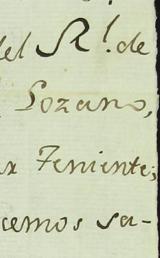 del Rl. de
Lozano,
Teniente,
cemos sa-